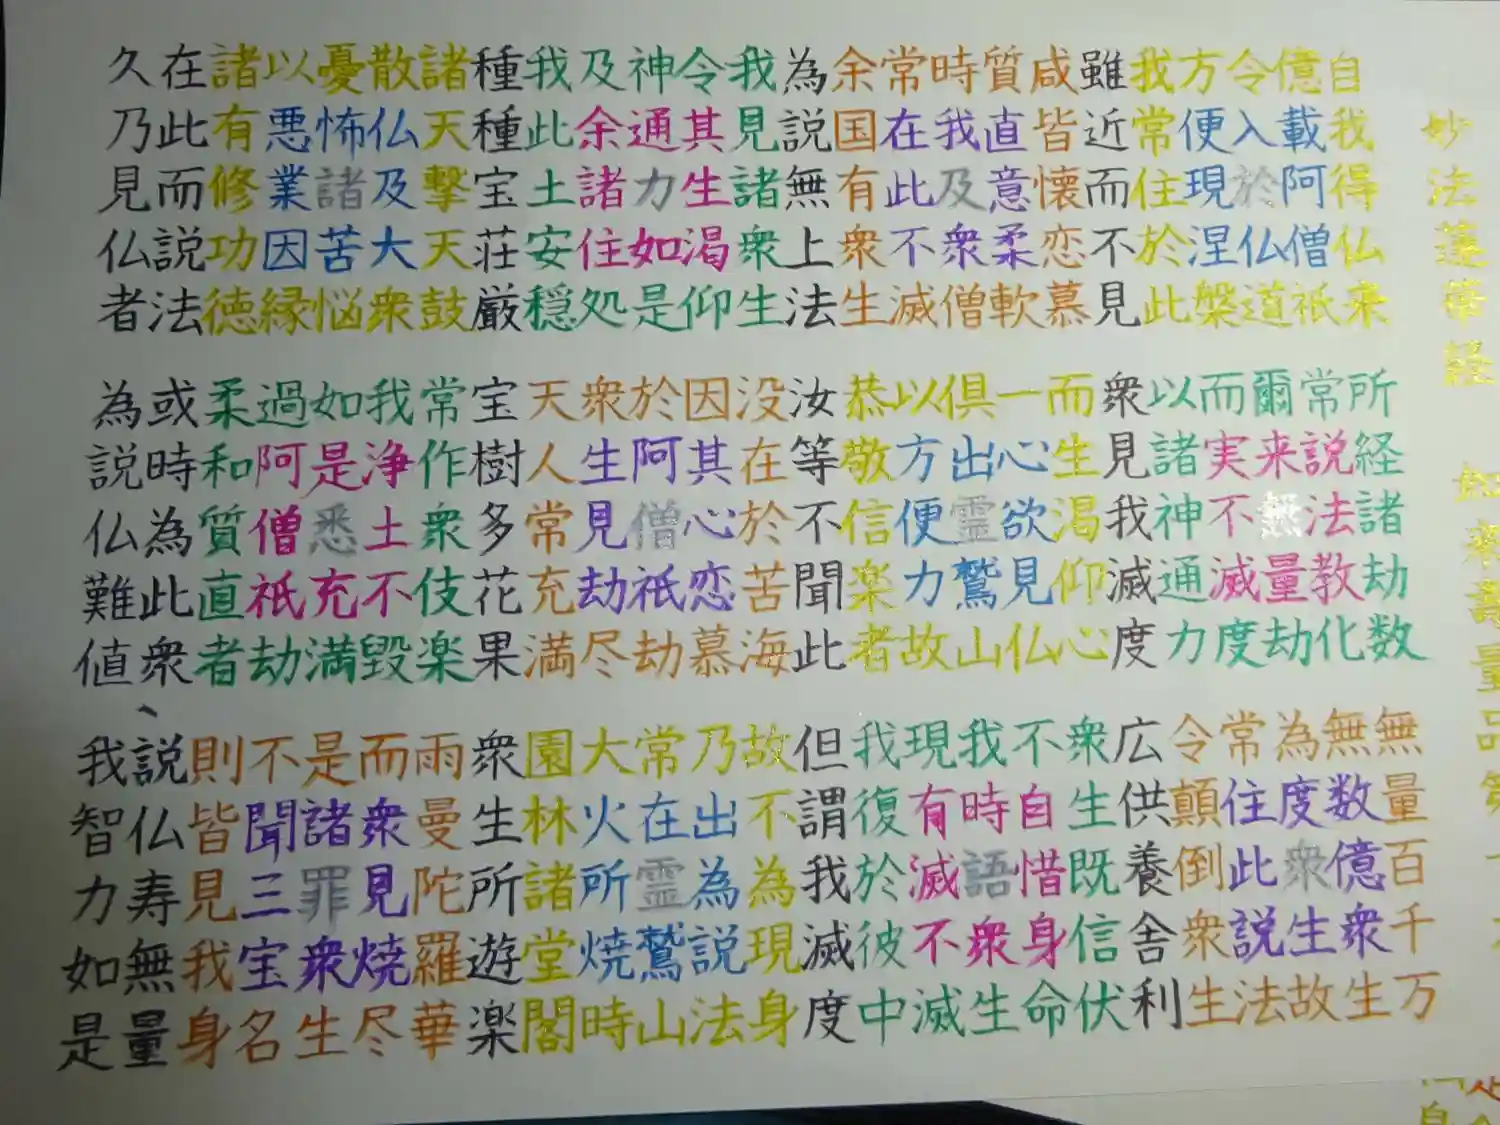 妙法蓮華経 如来壽量品第
自我得仏来 所経諸劫数 無量百千万
億載阿僧祇 常説法教化 無数億衆生
令入於仏道 爾来無量劫 為度衆生故
方便現涅槃 而実不滅度 常住此説法
我常住於此 以諸神通力 令顛倒衆生
雖近而不見 衆見我滅度 広供養舎利
咸皆懐恋慕 而生渇仰心 衆生既信伏
質直意柔軟 一心欲見仏 不自惜身命
時我及衆僧 倶出霊鷲山 我時語衆生
常在此不滅 以方便力故 現有滅不滅
余国有衆生 恭敬信楽者 我復於彼中
為説無上法 汝等不聞此 但謂我滅度
我見諸衆生 没在於苦海 故不為現身
令其生渇仰 因其心恋慕 乃出為説法
神通力如是 於阿僧祇劫 常在霊鷲山
及余諸住処 衆生見劫尽 大火所焼時
我此土安穏 天人常充満 園林諸堂閣
種種宝荘厳 宝樹多花果 衆生所遊楽
諸天撃天鼓 常作衆伎楽 雨曼陀羅華
散仏及大衆 我浄土不毀 而衆見焼尽
憂怖諸苦悩 如是悉充満 是諸罪衆生
以悪業因縁 過阿僧祇劫 不聞三宝名
諸有修功徳 柔和質直者 則皆見我身
在此而説法 或時為此衆 説仏寿無量
久乃見仏者 為説仏難値 我智力如是